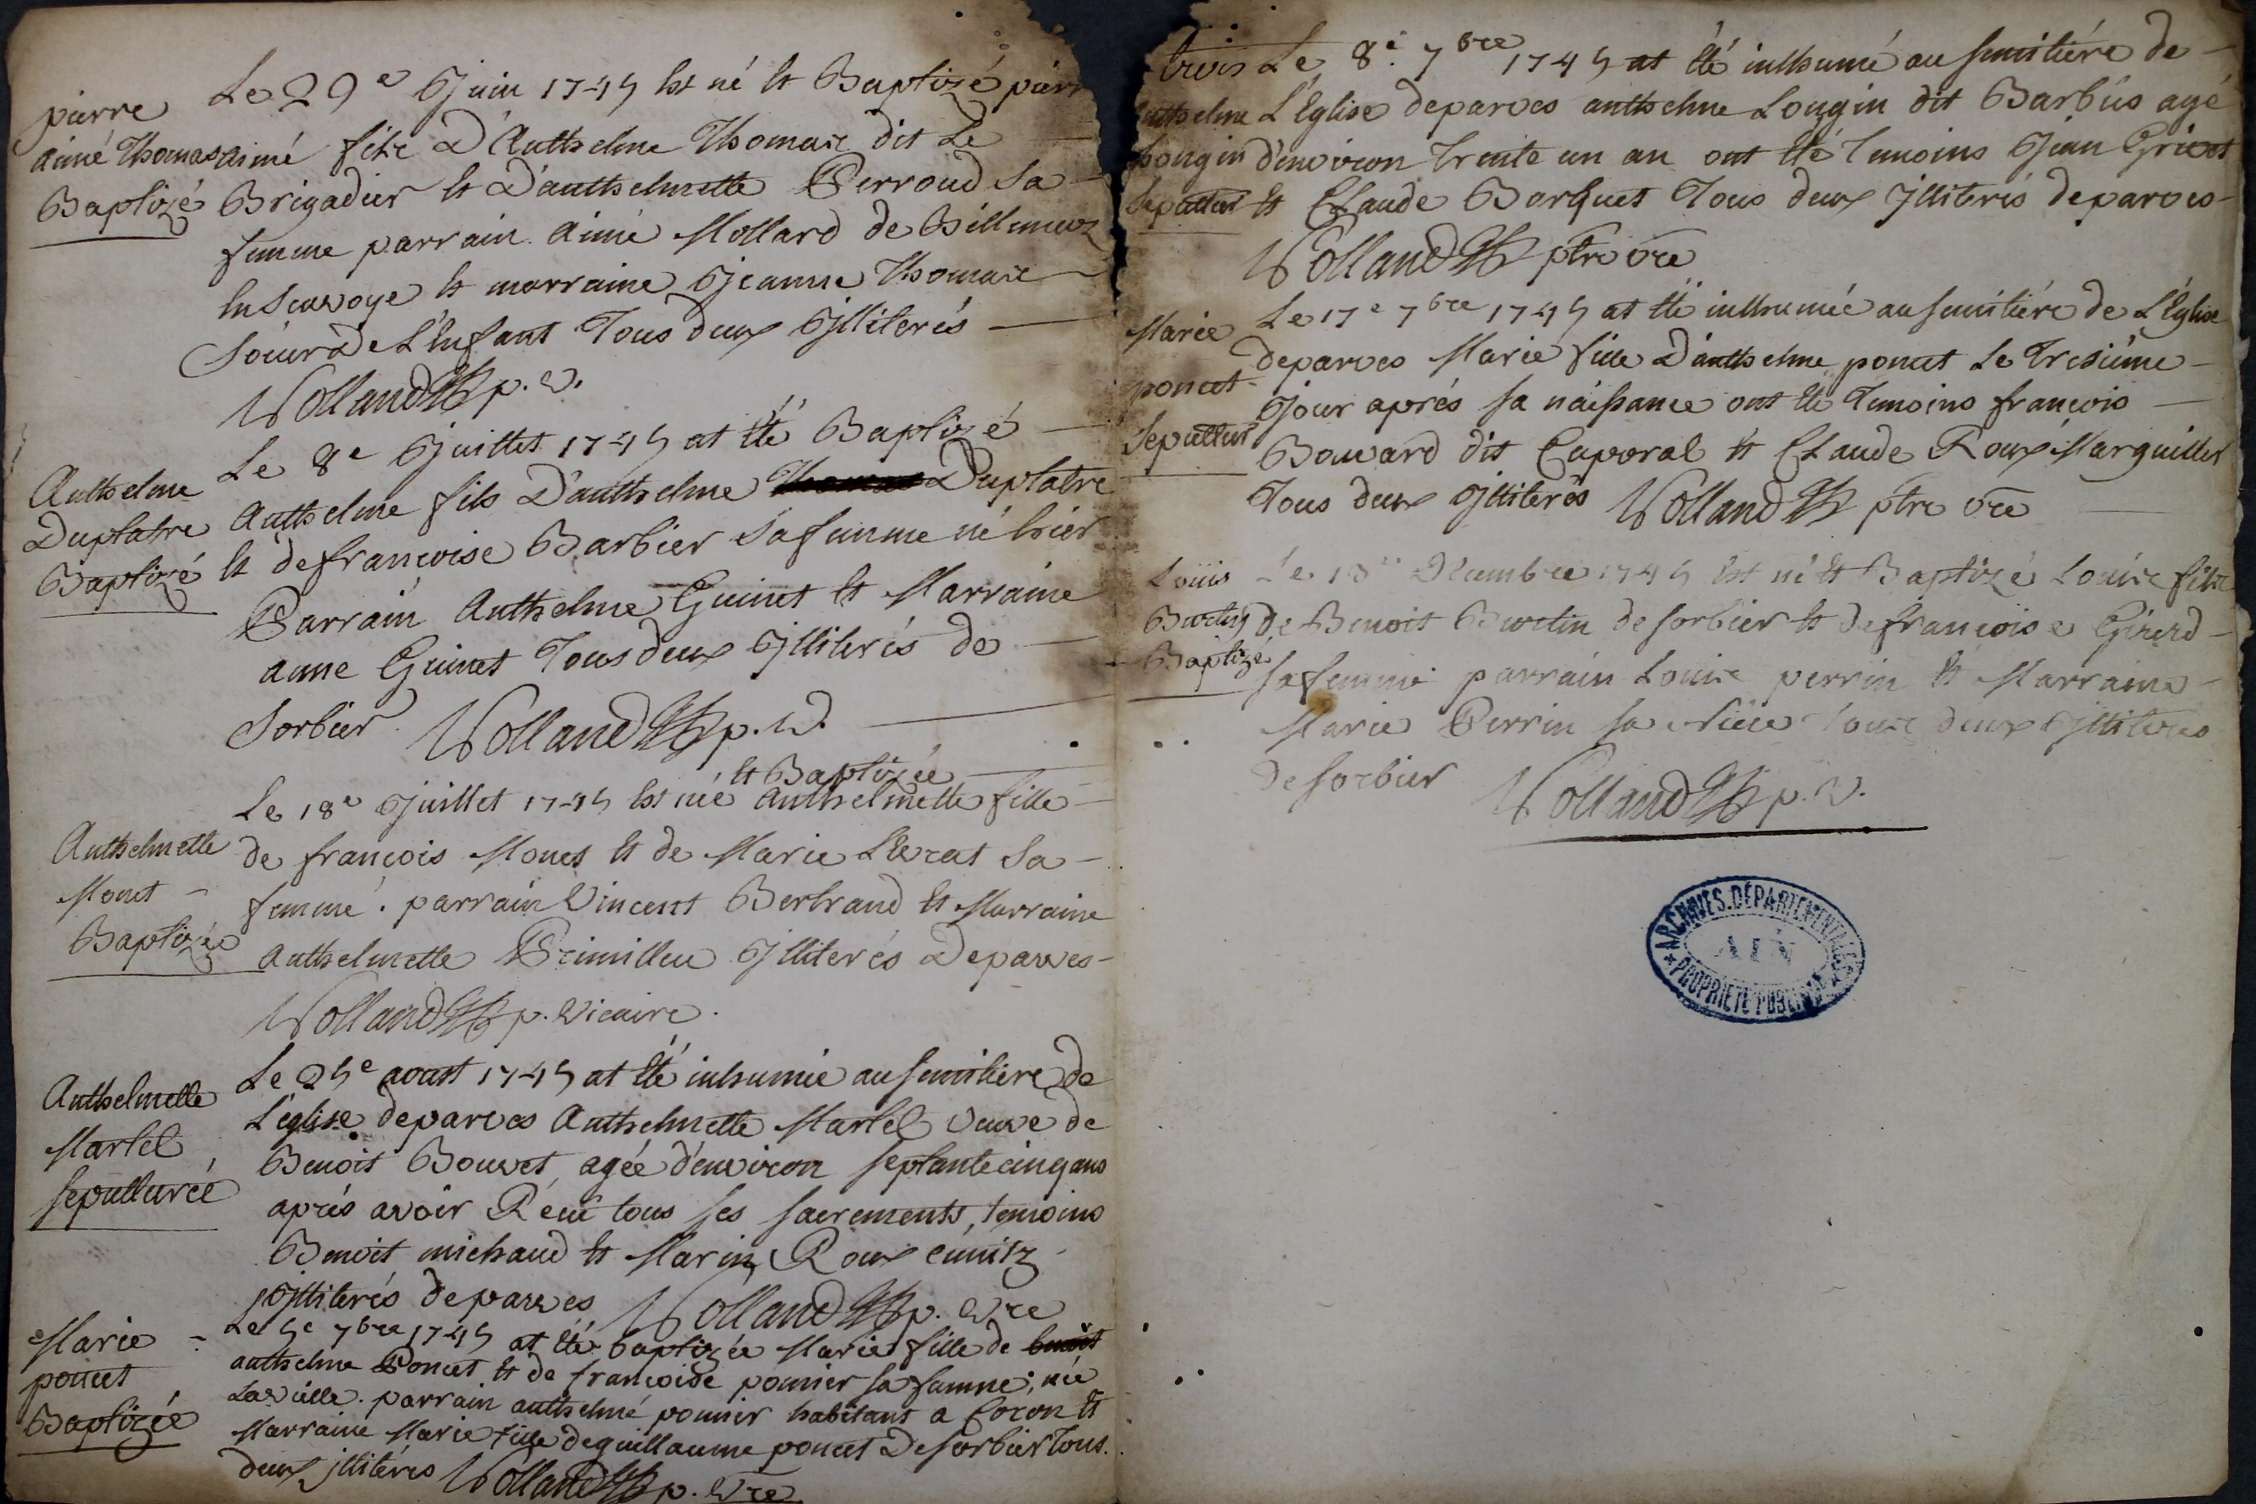 pierre
aimé Thomas
Baptizé
Le 29e Juin 1745 Est né Et Baptizé pierr
aimé filz D'Anthelme Thomaz dit Le
Brigadier Et D'anthelmette Perroud Sa
femme parrain aimé Mollard de Billimeux
En Scavoye Et marraine Jeanne Thomaz
Soeur De L'Enfant Tous deux Jlliterés
Volland p. v.
Anthelme
Duplatre
Baptizé
Le 8e Juillet 1745 at Eté Baptizé
Anthelme fils D'anthelme Duplatre
Et de françoise Barbier Sa femme né hier
Parrain Anthelme Guinet Et Marraine
anne Guinet Tous deux Jlliterés de
Sorbier Volland p. v.
Anthelmette
Monet
Baptizée
Et Baptizée
Le 18e Juillet 1745 Est née Anthelmette fille
de françois Monet Et de Marie Lherat Sa
femme. parrain Vincent Bertrand Et Marraine
Anthelmette Primilleu Jlliterés De parves
Volland p. Vicaire.
Anthelmette
Martel
sepulturée
Le 25e aoust 1745 at Eté inhumée au semitière de
L'église de parves Anthelmette Martel Veuve de
Benoit Bouvet, agée d'environ septante cinq ans
après avoir Réçu tous ses sacrements, temoins
Benoit michaud Et Marin Roux
Jlliterés de parves Volland p. vre
Marie
poncet
Baptizée
Le 5e 7bre 1745 at Eté baptizée Marie fille de benoit
anthelme Poncet Et de françoise ponnier sa famme, née
La veille. parrain anthelme ponnier habitant a Coron Et
Marraine Marie fille de guillaume poncet De Sorbier Tous
deux jlliterés Volland p. vre
Anthelme
Longin
Sepulturé
Le 8e 7bre 1745 at Eté inhumé au semitière de
L'Eglise de parves anthelme Longin dit Barbus agé
d'environ Trente un an ont Eté Temoins Jean Grivot
Et Claude Borquet Tous deux Jlliterés de parves
Volland ptre vre
Marie
poncet
Sepulturé
Le 17e 7bre 1745 at Eté inhumée au semitière de L'Eglise
de parves Marie fille D'anthelme poncet Le Tresième
Jour après sa naissance ont Eté Temoins françois
Bouvard dit Caporal Et Claude Roux Marguiller
Tous deux Jlliterés Volland ptre vre
Loüis
Burtin
Baptizé
Le 18e Décembre 1745 Est né Et Baptizé Louis filz
de Benoit Burtin de sorbier Et de françoise Girerd
sa femme parrain Louiz perrin Et Marraine
Marie Perrin sa Niéce Tous deux Jlliterés
de sorbier Volland p. v.
ARCHIVES DÉPARTEMENTALES
AIN
PROPRIÉTÉ PUBLIQUE